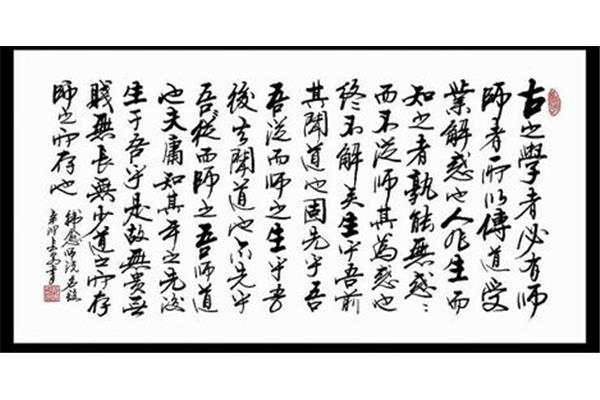 古之學者必有師
師者所以傳道受
業解惑也人非生而
知之者孰能無惑〻
而不從師其為惑也
終不解矣生乎吾前
其聞道也固先乎吾
吾從而師之生乎吾
後其聞道也亦先乎
吾從而師之吾師道
也夫庸知其年之先後
生于吾乎是故無貴無
賤無長無少道之所存
師之所存也
韓愈師說
辛卯